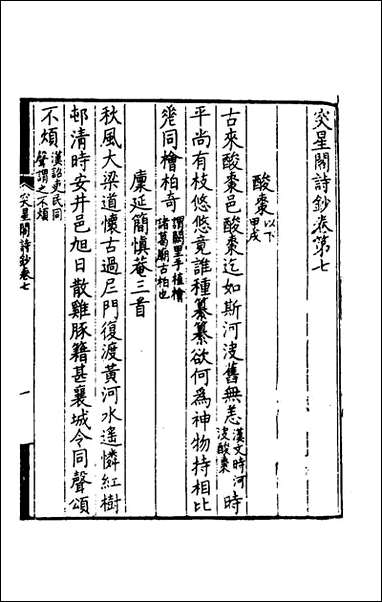 突星閣詩鈔卷第七
酸棗以下甲戌
古來酸棗邑酸棗迄如斯河決舊無恙漢文時河決酸棗時
平尚有枝悠悠竟誰種纂纂欲何爲神物持相比
同檜柏奇謂闕里手植檜諸葛廟古柏也
廩延簡慎菴三首
秋風大梁道懷古過尼門復渡黃河水遙憐紅樹
邨清時安井邑旭日散雞豚籍甚襄城令同聲頌
不煩漢詔吏民同聲謂之不煩
突星閣詩鈔卷七
一